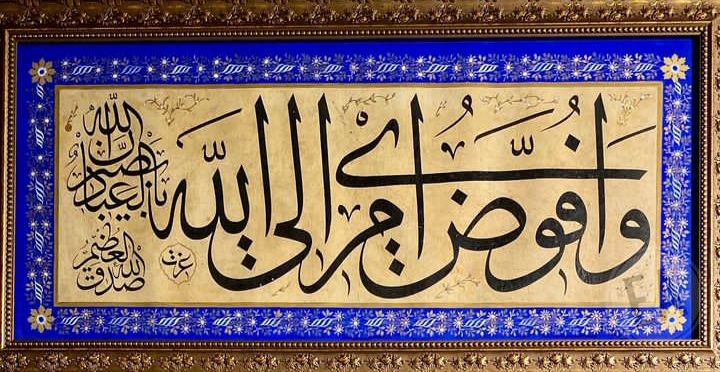 وَاُفَوِّضُ اَمْرِي اِلَى اللّٰه
اِنَّ اللّٰه بَصِيرٌ بِالْعِبَاد
صدق الله العظيم
عزت